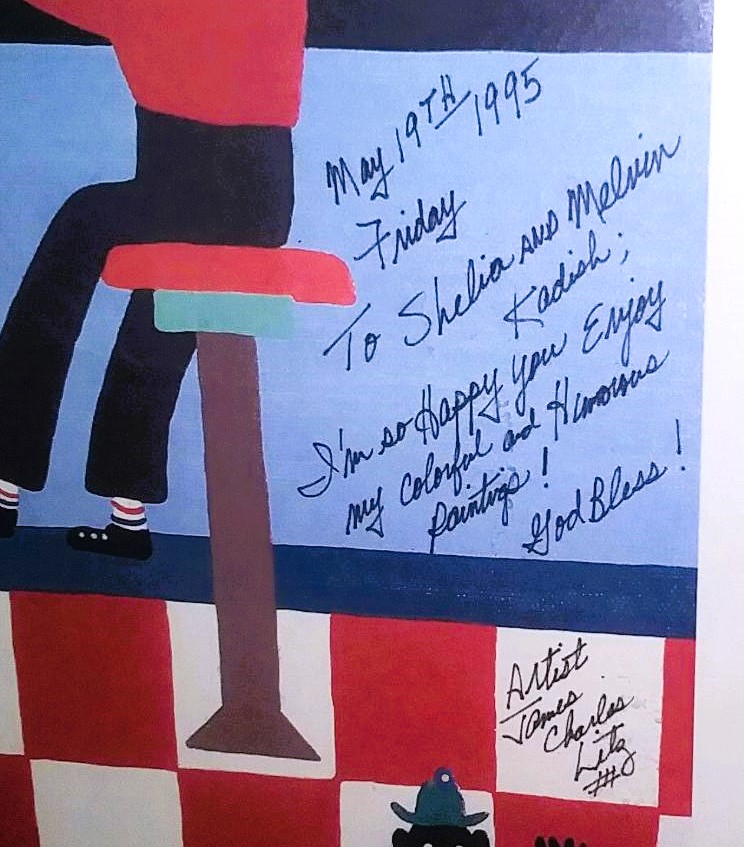 May 19TH 1995
Friday
To Shelia AND Melvin
Kadish;
I'm so Happy you Enjoy
my colorful and Humorous
paintings!
God Bless!
Artist
James
Charles
Litz